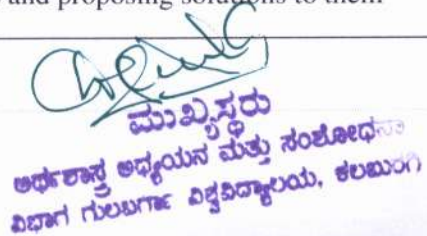 and proposing solutions to them
ಮುಖ್ಯಸ್ಥರು
ಅರ್ಥಶಾಸ್ತ್ರ ಅಧ್ಯಯನ ಮತ್ತು ಸಂಶೋಧನಾ
ವಿಭಾಗ ಗುಲಬರ್ಗಾ ವಿಶ್ವವಿದ್ಯಾಲಯ, ಕಲಬುರಗಿ